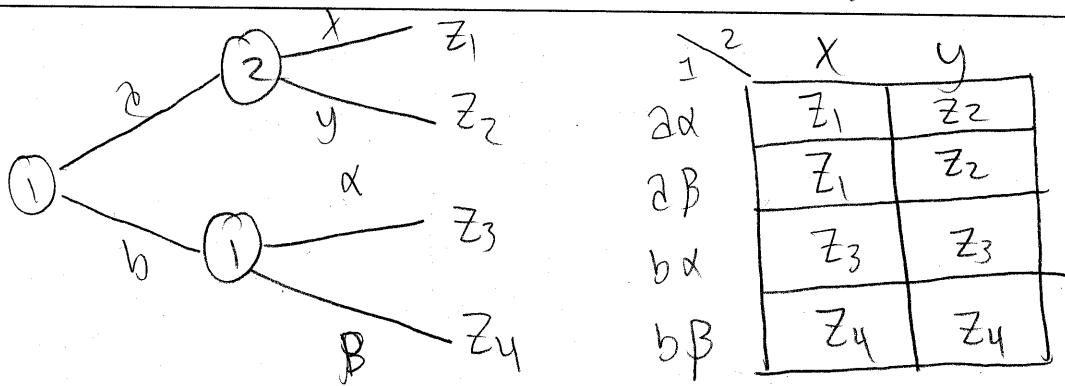 x z₁
2
a y z₂
1
α
b 1 z₃
β z₄
1 2 x y
aα z₁ z₂
aβ z₁ z₂
bα z₃ z₃
bβ z₄ z₄